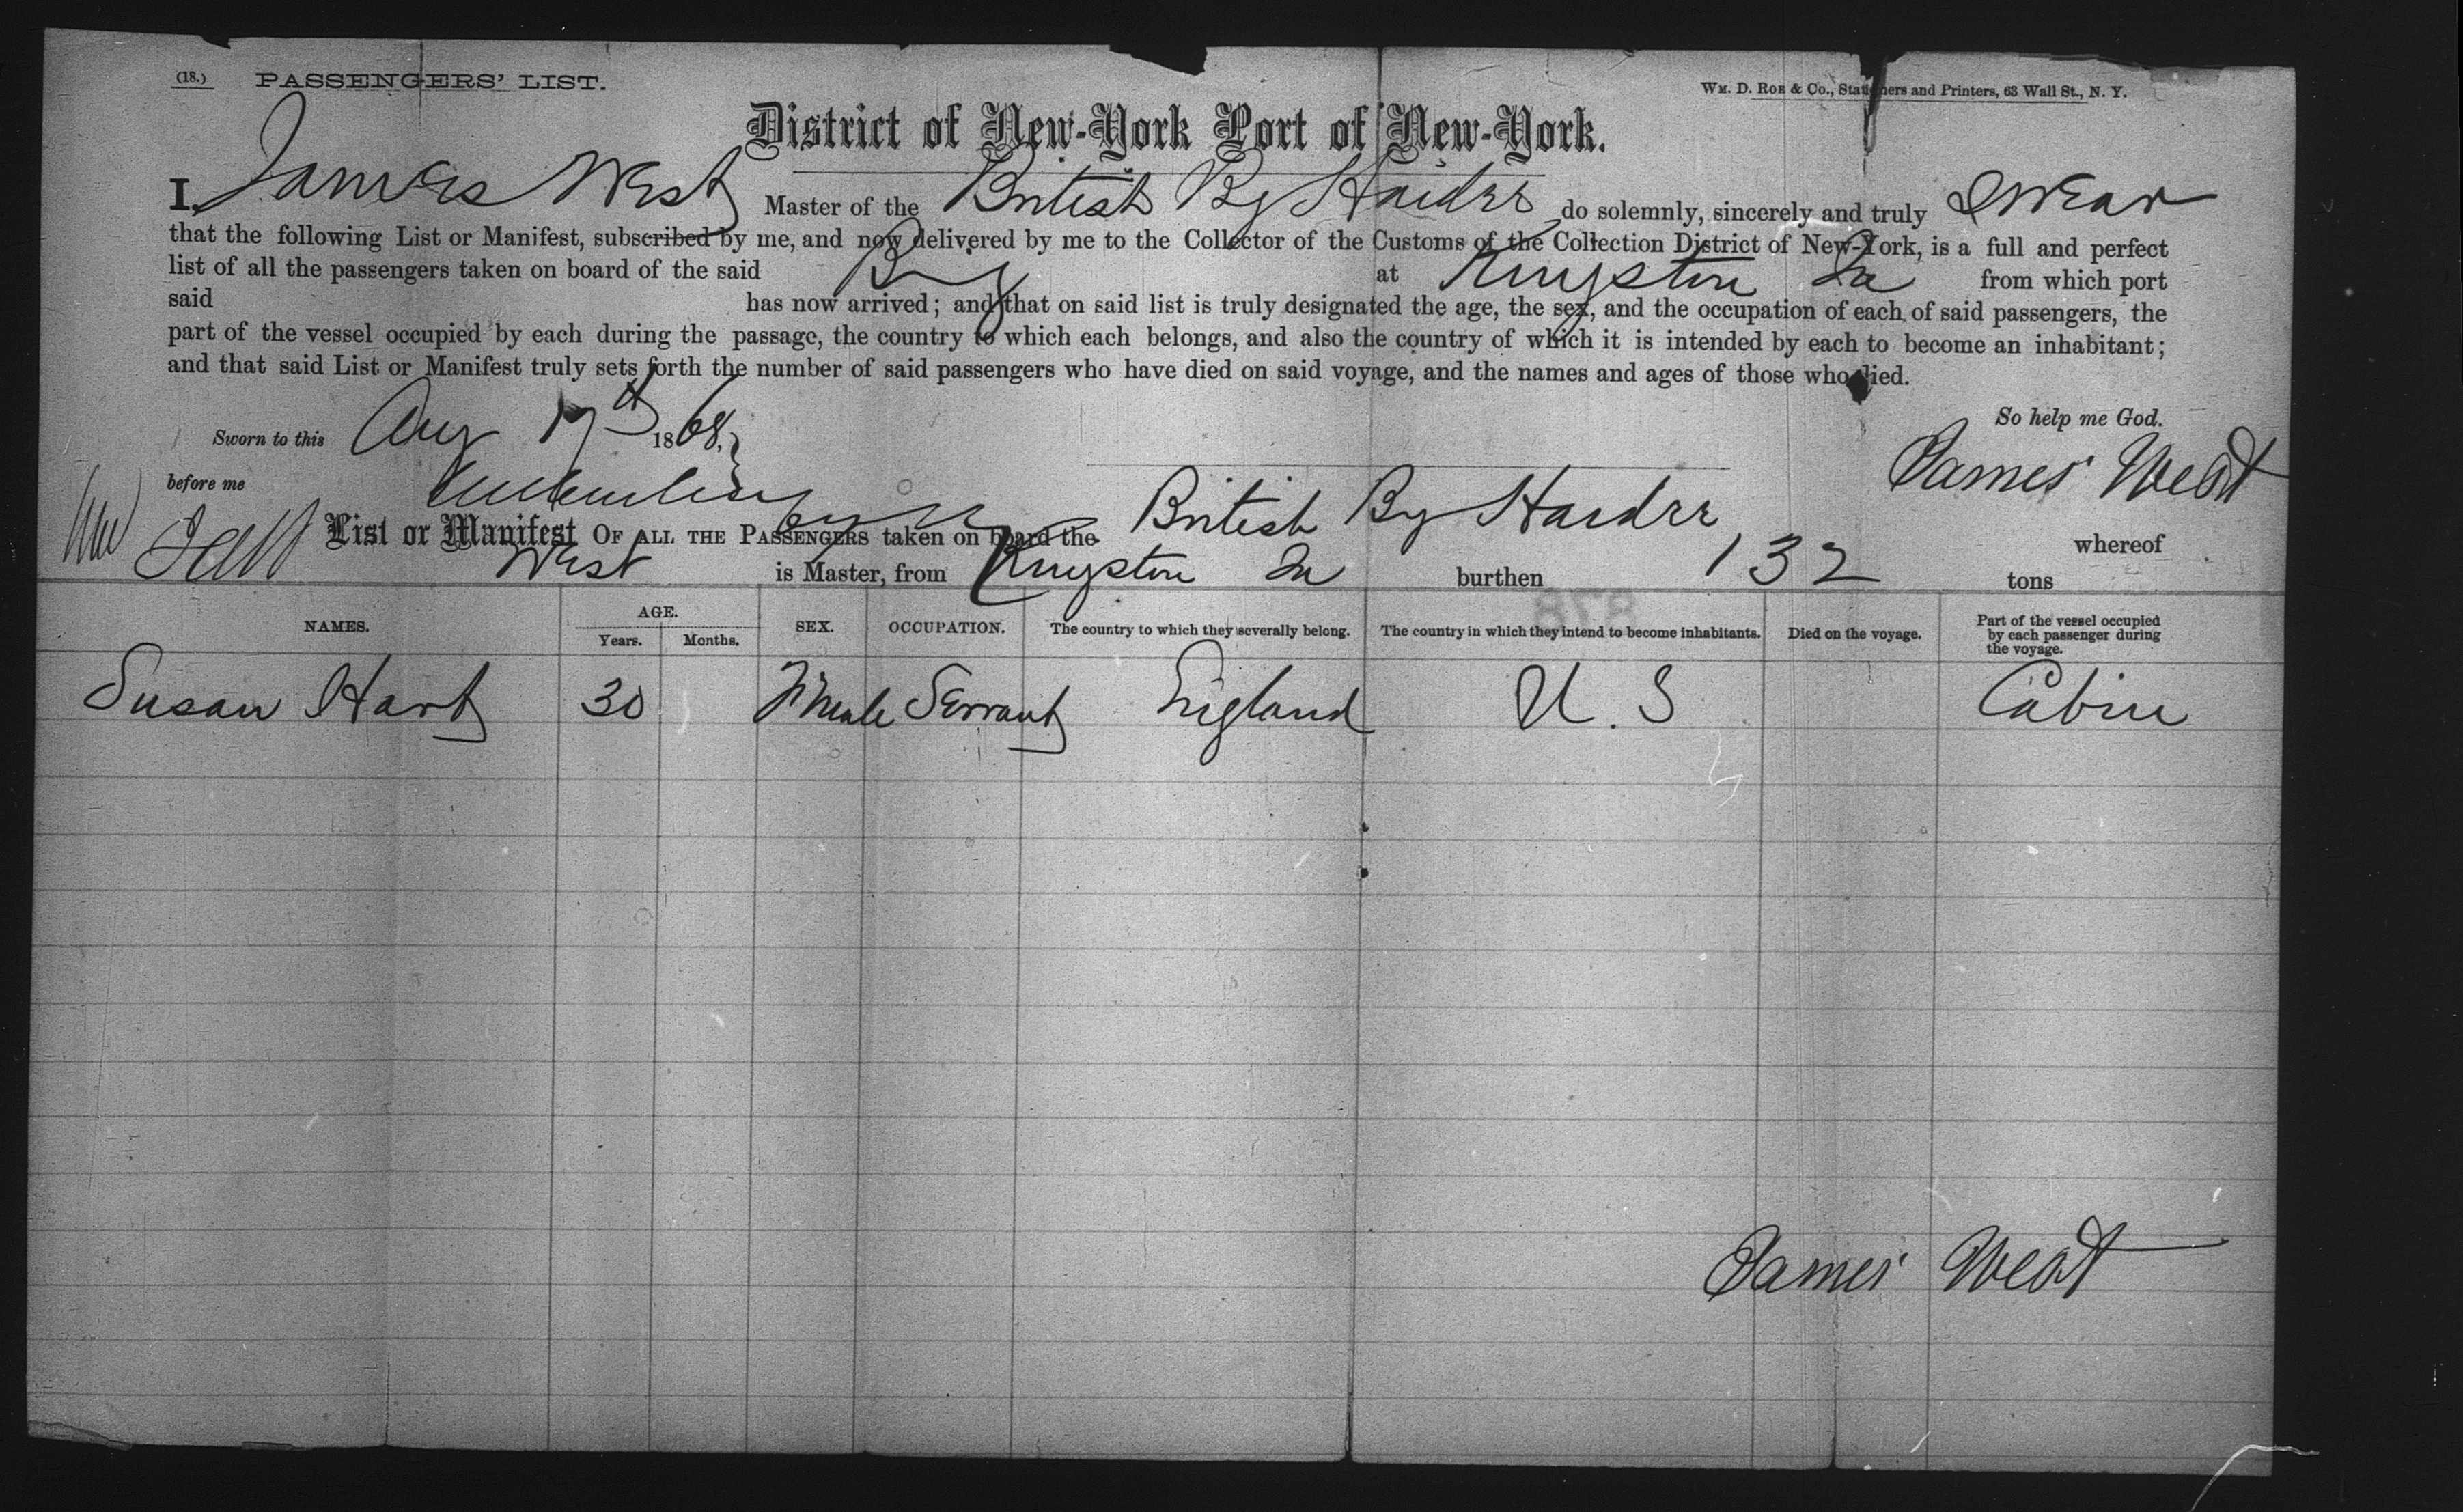 (18.) PASSENGERS' LIST. Wm. D. Roe & Co., Stationers and Printers, 63 Wall St., N. Y.
District of New-York Port of New-York.
I, James West Master of the British Bg Haidee do solemnly, sincerely and truly swear
that the following List or Manifest, subscribed by me, and now delivered by me to the Collector of the Customs of the Collection District of New-York, is a full and perfect
list of all the passengers taken on board of the said Brig at Kingston Ja from which port
said has now arrived; and that on said list is truly designated the age, the sex, and the occupation of each of said passengers, the
part of the vessel occupied by each during the passage, the country to which each belongs, and also the country of which it is intended by each to become an inhabitant;
and that said List or Manifest truly sets forth the number of said passengers who have died on said voyage, and the names and ages of those who died.
So help me God.
Sworn to this Aug 17th 1868, James West
before me
List or Manifest OF ALL THE PASSENGERS taken on board the British Bg Haidee whereof
West is Master, from Kingston Ja burthen 132 tons
878
NAMES. AGE. Years. Months. SEX. OCCUPATION. The country to which they severally belong. The country in which they intend to become inhabitants. Died on the voyage. Part of the vessel occupied by each passenger during the voyage.
Susan Hart 30 Female Servant England U. S Cabin
James West